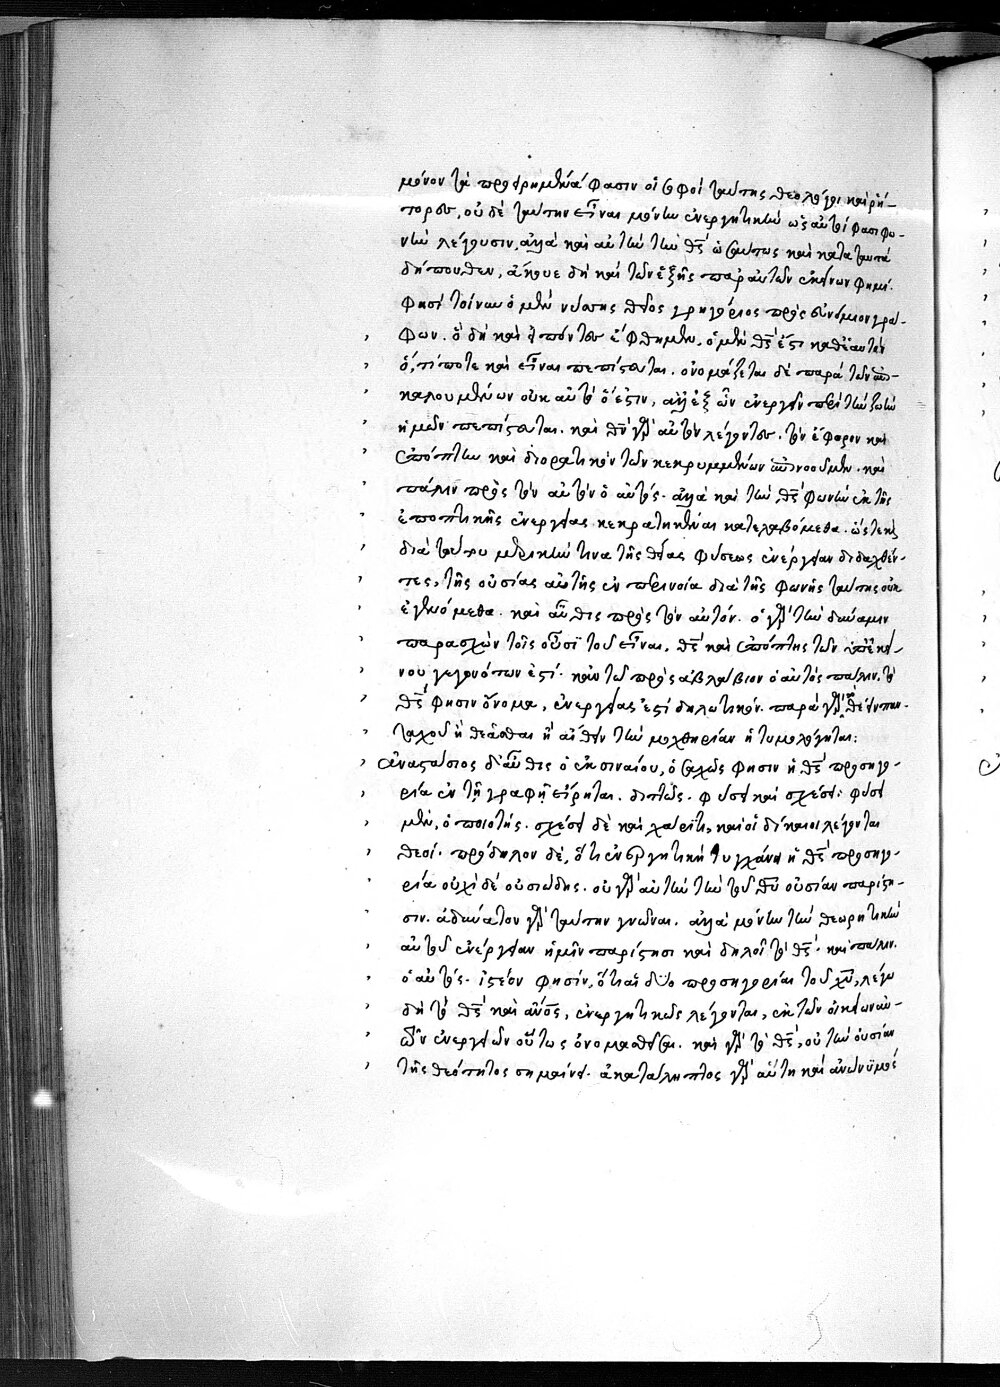 μόνον τὰ προειρημένα φασιν οἱ σοφοὶ ταύτης θεολόγοι καὶ ῥή-
τορες, οὐδὲ ταύτην εἶναι μόνην ἐνεργητικὴν ὡς αὐτοί φασι φω-
νὴν λέγουσιν, ἀλλὰ καὶ αὐτὴν τὴν θς̄ ὡσαύτως καὶ κατὰ ταυτὰ
δήπουθεν, ἄκουε δὴ καὶ τῶν ἑξῆς παρ' αὐτῶν ἐκείνων φημί.
Φησὶ τοίνυν ὁ μὲν νύσσης θεῖος γρηγόριος πρὸς συνόμιον γρά-
φων. ὃ δὴ καὶ εἰπόντες ἔφθημεν, ὁ μὲν θς̄ ἐστι καθ' ἑαυτὸν
ὅ, τί ποτε καὶ εἶναι πεπίστευται. ὀνομάζεται δὲ παρὰ τῶν ἐπι-
καλουμένων οὐκ αὐτὸ ὅ ἐστιν, ἀλλ' ἐξ ὧν ἐνεργεῖν περὶ τὴν ζωὴν
ἡμῶν πεπίστευται. καὶ θν̄ γὰρ αὐτὸν λέγοντες. τὸν ἔφορον καὶ
ἐπόπτην καὶ διορατικὸν τῶν κεκρυμμένων ἐπινοοῦμεν. καὶ
πάλιν πρὸς τὸν αὐτὸν ὁ αὐτός. ἀλλὰ καὶ τὴν θς̄ φωνὴν ἐκ τῆς
ἐποπτικῆς ἐνεργείας κεκρατηκέναι κατελαβόμεθα. ὥστε καὶ
διὰ τούτου μερικήν τινα τῆς θείας φύσεως ἐνέργειαν διδαχθέν-
τες, τῆς οὐσίας αὐτῆς ἐν περινοίᾳ διὰ τῆς φωνῆς ταύτης οὐκ
ἐγενόμεθα. καὶ αὖθις πρὸς τὸν αὐτόν. ὁ γὰρ τὴν δύναμιν
παρασχὼν τοῖς οὖσι τοῦ εἶναι, θς̄ καὶ ἐπόπτης τῶν ὑπ' ἐκεί-
νου γεγονότων ἐστί. κἀν τῷ πρὸς ἀβλάβιον ὁ αὐτὸς πάλιν, τὸ
θς̄ φησιν ὄνομα, ἐνεργείας ἐστὶ δηλωτικόν. παρὰ γὰρ τὸ θέειν παν-
ταχοῦ ἢ θεᾶσθαι ἢ αἴθειν τὴν μοχθηρίαν ἠτυμολόγηται:
ἀναστάσιος δ' αὖθις ὁ ἐκ σιναίου, ὁλως φησιν ἡ θς̄ προσηγο-
ρία ἐν τῇ γραφῇ εἴρηται. διττῶς. φύσει καὶ σχέσει. φύσει
μὲν, ὁ ποιητής. σχέσει δὲ καὶ χάριτι, καὶ οἱ δίκαιοι λέγονται
θεοί. πρόδηλον δὲ, ὅτι ἐνεργητικὴ τυγχάνει ἡ θς̄ προσηγο-
ρία οὐχὶ δὲ οὐσιώδης. οὐ γὰρ αὐτὴν τὴν τοῦ θῦ οὐσίαν παρίστη-
σιν. ἀδύνατον γὰρ ταύτην γνῶναι. ἀλλὰ μόνην τὴν θεωρητικὴν
αὐτοῦ ἐνέργειαν ἡμῖν παρίστησι καὶ δηλοῖ τὸ θς̄. καὶ πάλιν.
ὁ αὐτός. ἰστέον φησίν, ὅτι αἱ δύο προσηγορίαι τοῦ χῦ, λέγω
δὴ τὸ θς̄ καὶ ἀν̄ος, ἐνεργητικῶς λέγονται, ἐκ τῶν οἰκείων αὐ-
τῶν ἐνεργειῶν οὕτως ὀνομασθεῖσαι. καὶ γὰρ τὸ θς̄, οὐ τὴν οὐσίαν
τῆς θεότητος σημαίνει. ἀκατάληπτος γὰρ αὕτη καὶ ἀνώνυμος